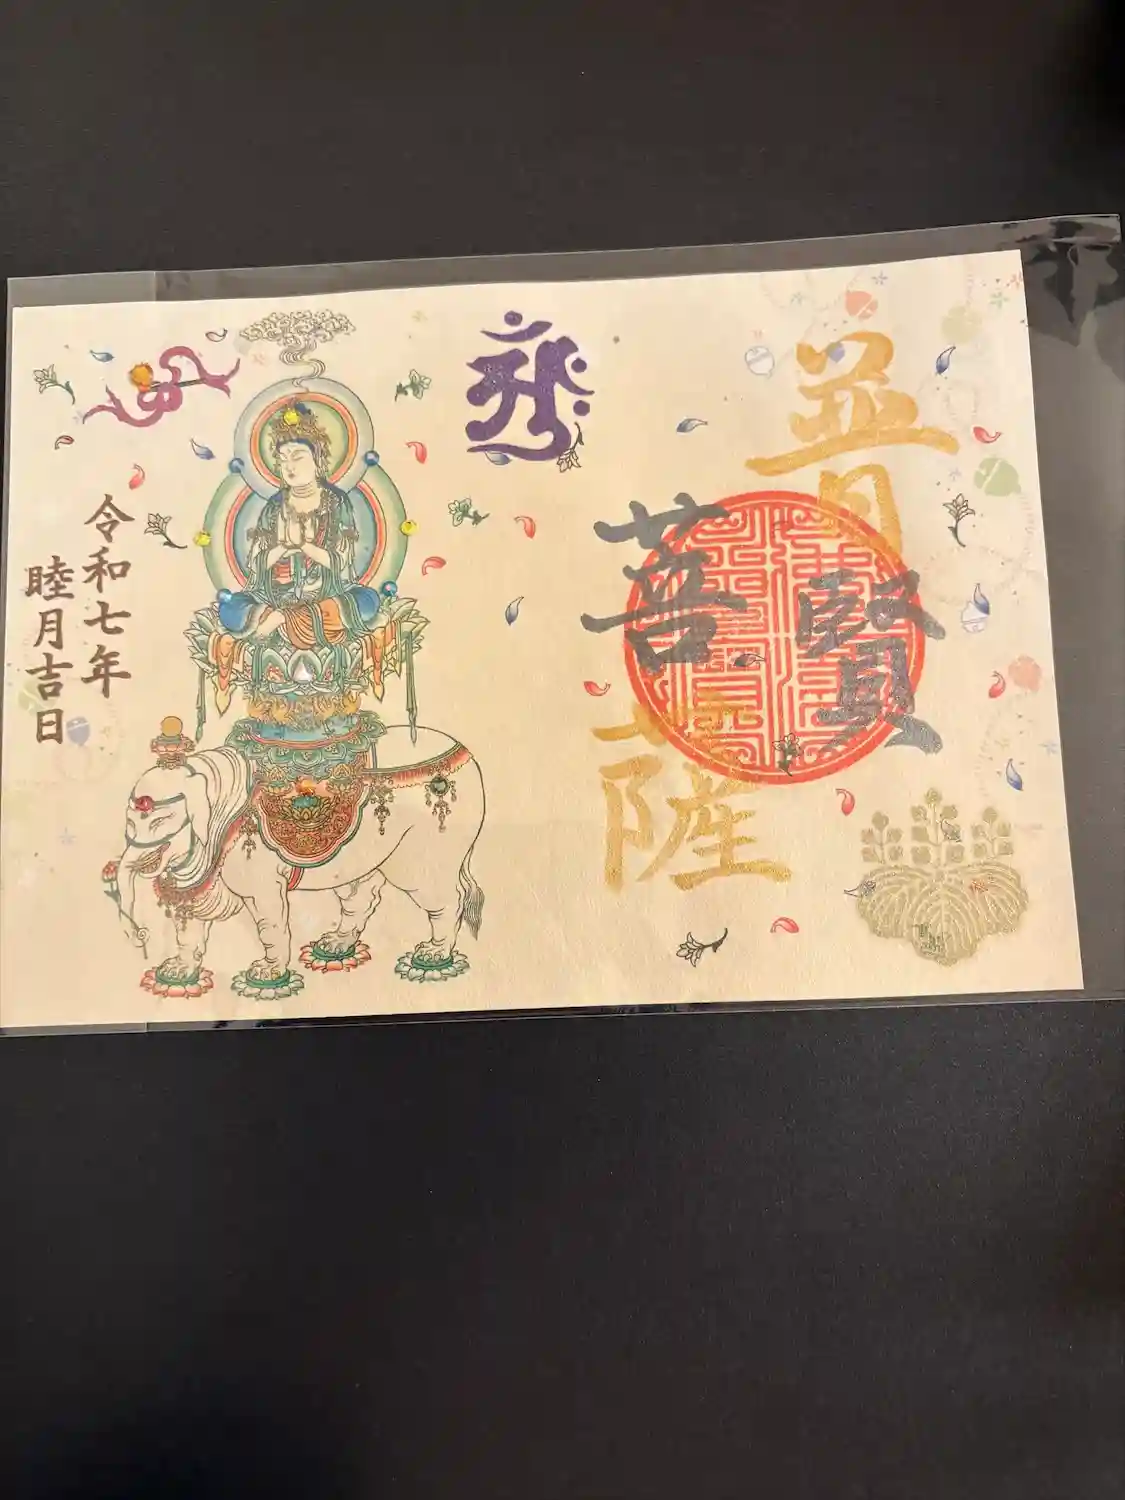 普賢
菩薩
令和七年
睦月吉日